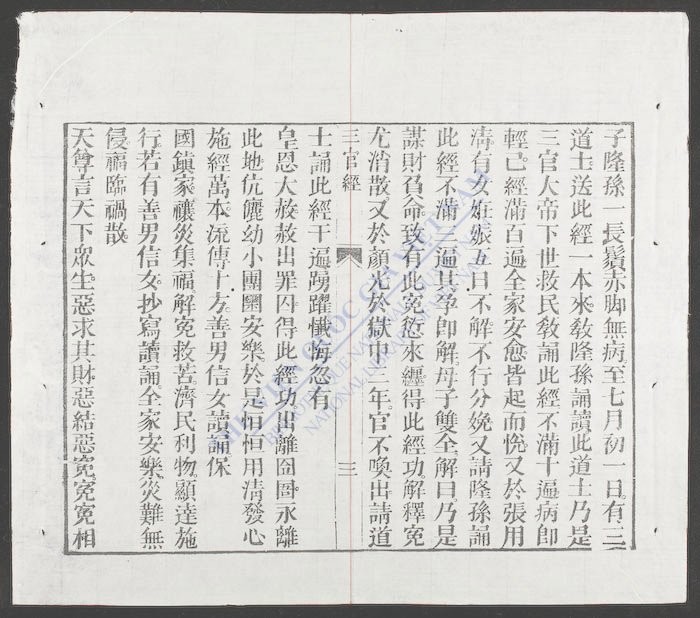 子隆孫一長鬚赤脚無病至七月初一日。有三
道士送此經一本來敎隆孫誦讀此道士乃是
三官大帝下世救民敎誦此經不滿十遍病卽
輕。已經滿百遍全家安愈皆起而悅又於張用
淸有女姙娠五日不解不行分娩又請隆孫誦
此經不滿一遍其孕卽解母子雙全解曰乃是
謀財負命致有此寃愆來纒得此經功。解釋寃
尤消散。又於顏光於獄中三年。官不喚出請道
三官經 三
士誦此經千遍踴躍懺悔忽有
皇恩大赦赦出罪囚得此經功出離囹圄永離
此地伉儷幼小團圞安樂於是恒恒用淸發心
施經萬本流傳十方。善男信女讀誦保
國鎭家禳災集福。解寃救苦濟民利物。顯達施
行。若有善男信女。抄寫讀誦。全家安樂。災難無
侵。福臨禍散。
天尊言天下眾生惡求其財惡結惡寃寃寃相
THƯ VIỆN QUỐC GIA VIỆT NAM
BIBLIOTHEQUE NATIONALE DU VIETNAM
NATIONAL LIBRARY OF VIETNAM